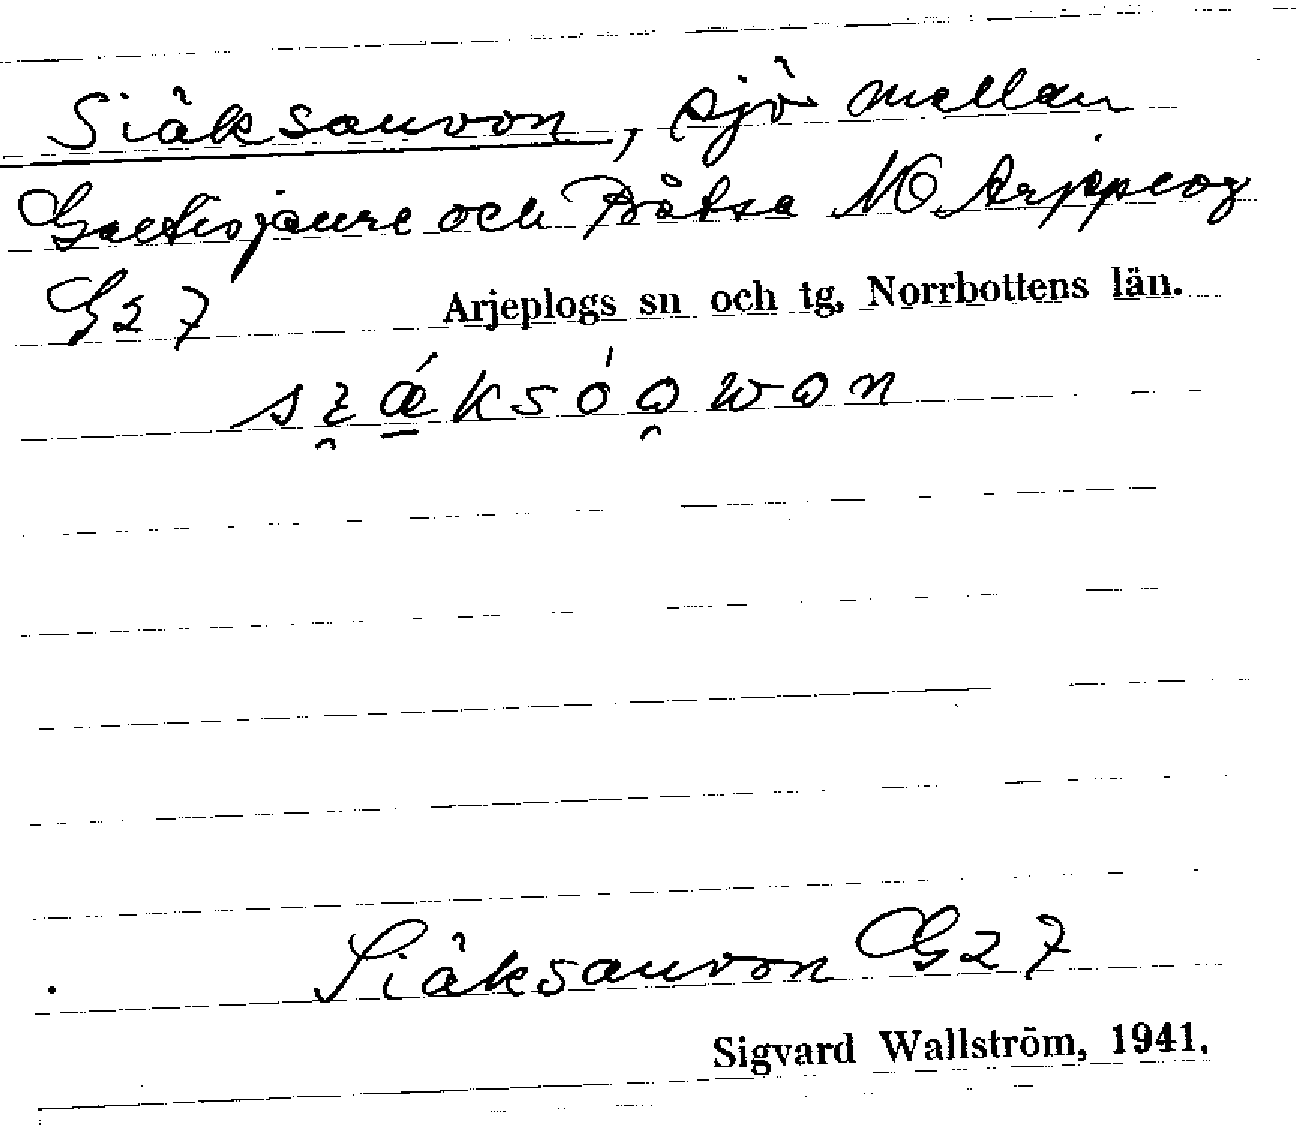 Siäksauvon, sjö mellan
och Båtsa NO Arjeplog
G27 Arjeplogs sn och tg, Norrbottens län.
Siäksauvon G27
Sigvard Wallström, 1941.